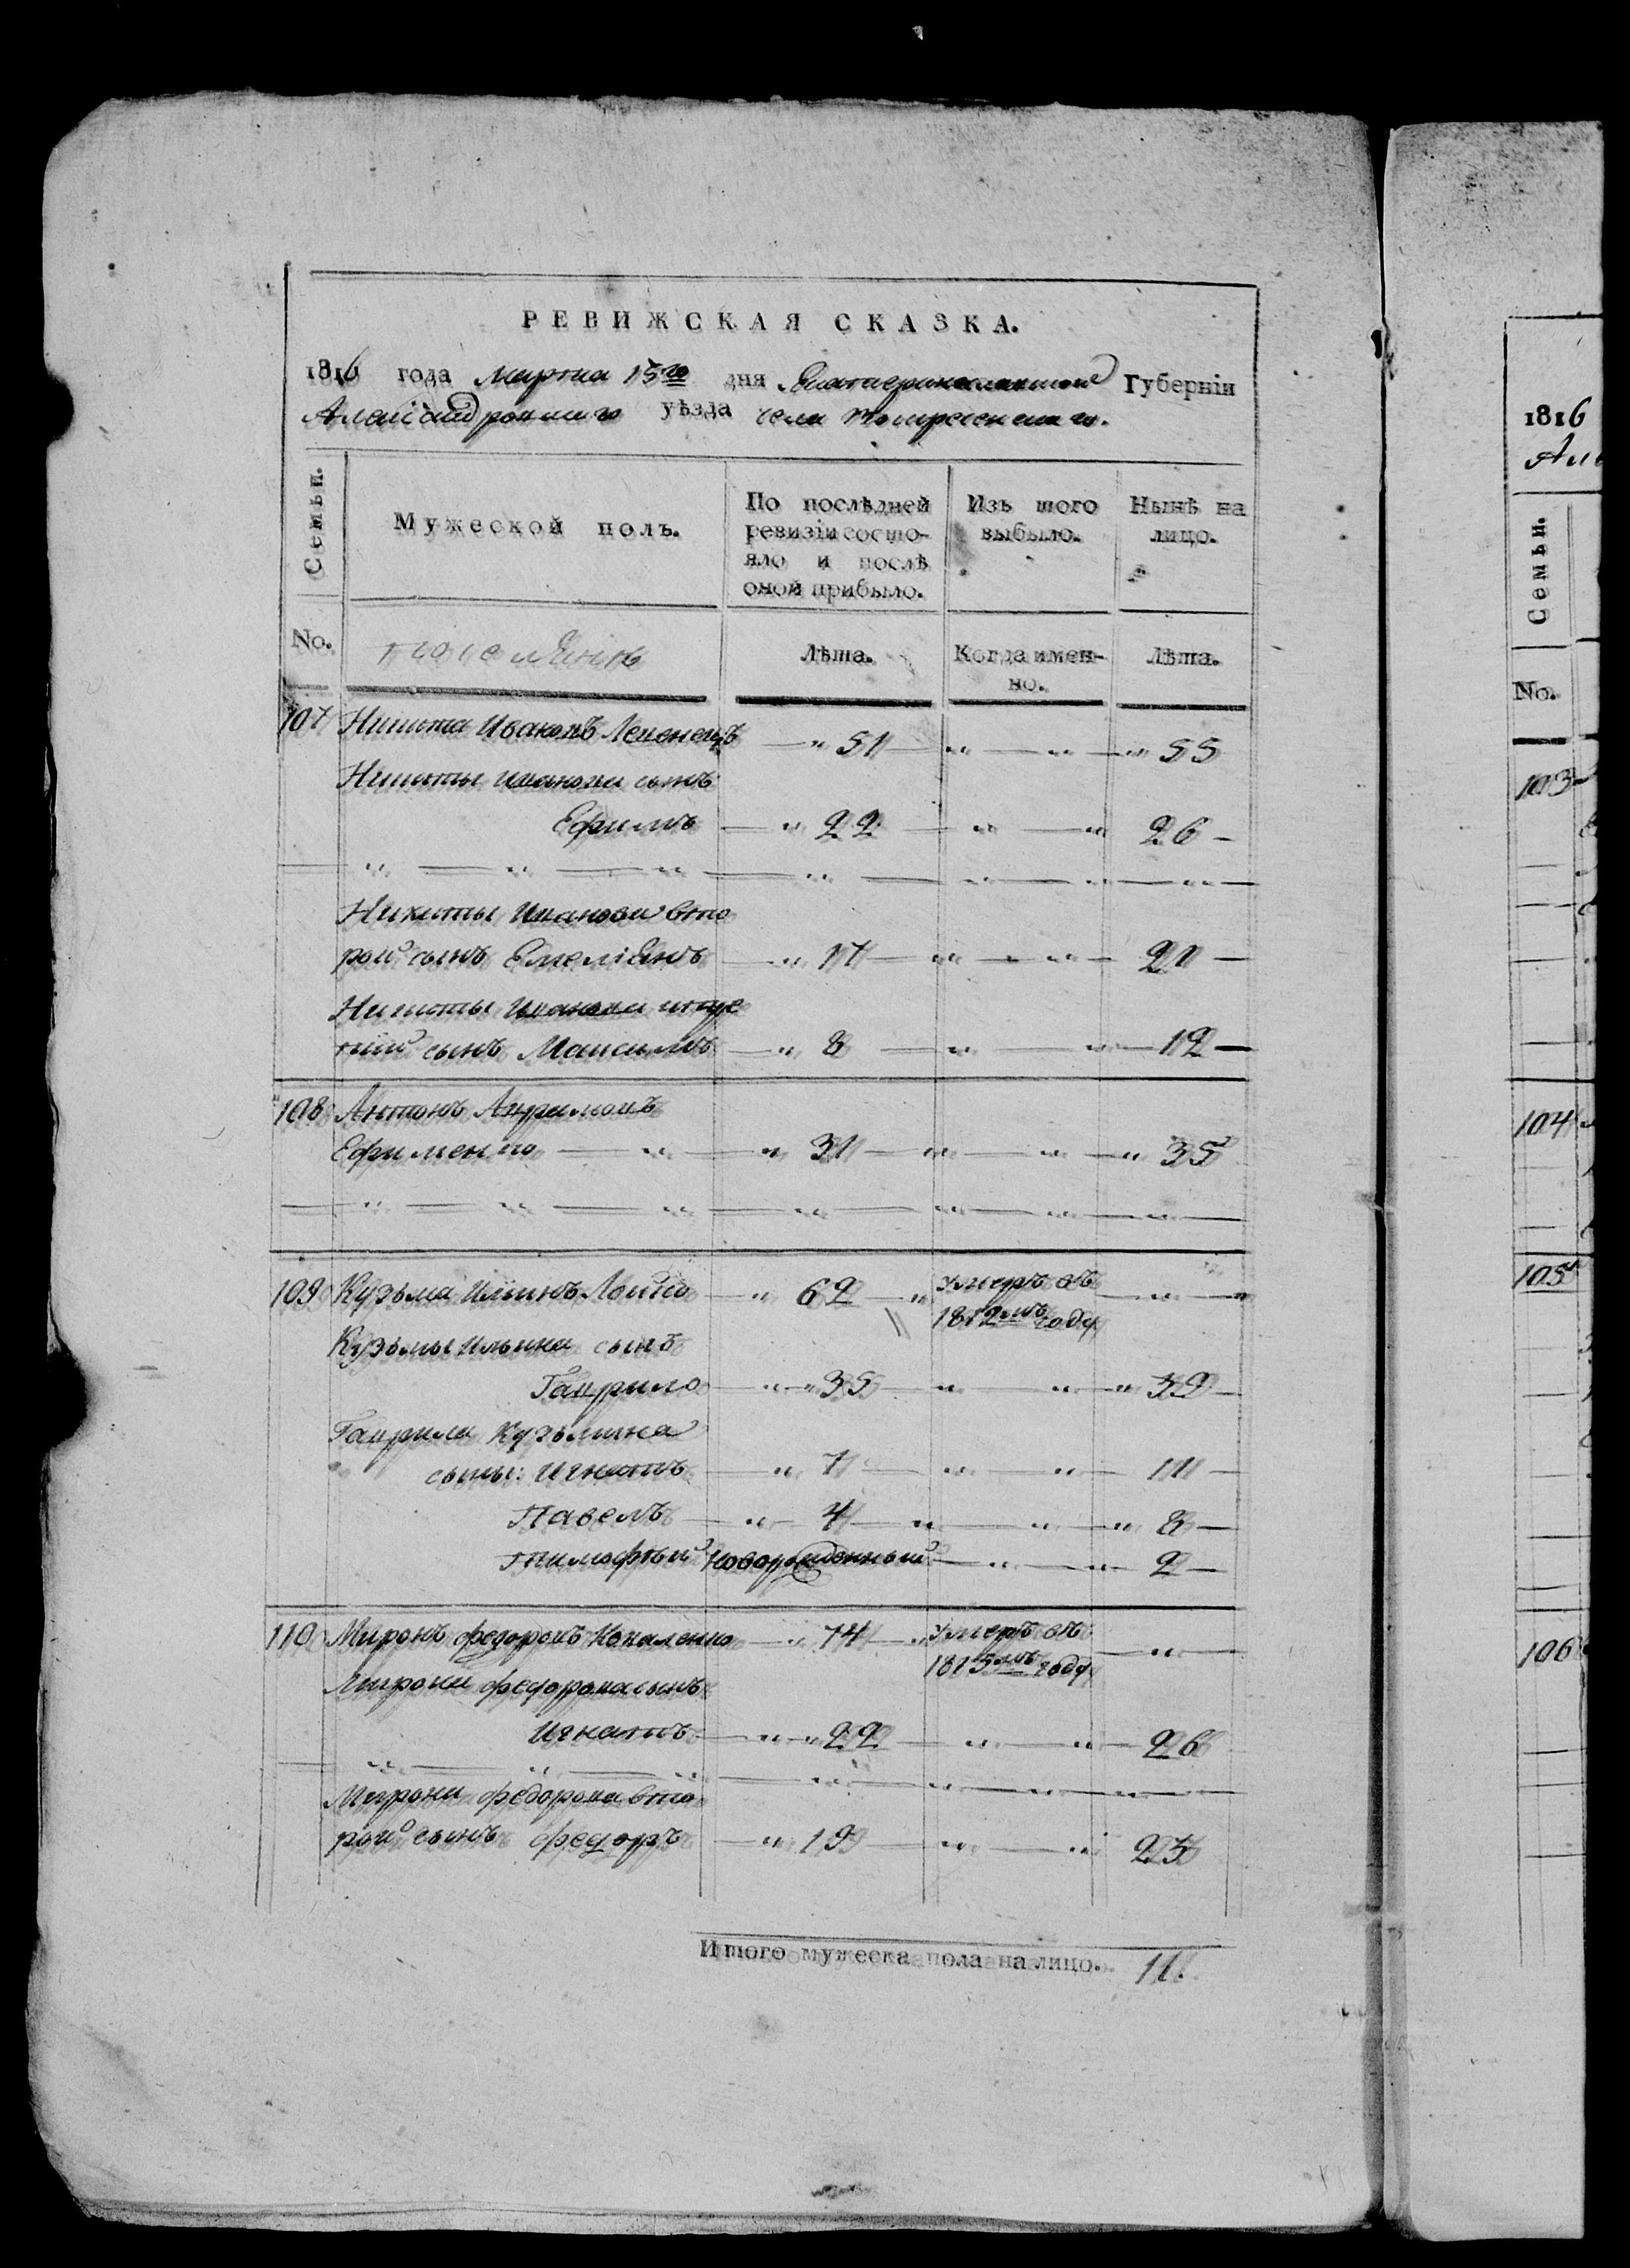 РЕВИЖСКАЯ СКАЗКА.
1816 года Марта 15го дня Екатеринославской Губерніи
Александровскаго уѣзда села Воскресенскаго.
Семьи.
Мужеской полъ.
По послѣдней ревизіи состояло и послѣ оной прибыло.
Изъ того выбыло.
Нынѣ на лицо.
No.
поселянѣ
Лѣта.
Когда именно.
Лѣта.
107 Никита Ивановъ Лепенецъ — „ 51 — „ — „ — „ 55
Никиты Иванова сынъ
Ефимъ — „ 22 — „ — „ 26 —
Никиты Иванова вто
рой сынъ Емеліянъ — „ 17 — „ — „ — 21 —
Никиты Иванова тре
тій сынъ Максимъ — „ 8 — „ „ — 12 —
108 Антонъ Ауримовъ
Ефименко — „ — „ 31 — „ — „ — „ 35
109 Кузьма Ильинъ Лойко — „ 62 — „ умеръ въ — „ — „
1812мъ году
Кузьмы Ильина сынъ
Гаврило — „ — „ 35 — „ „ — „ 39 —
Гаврила Кузьмина
сыны: Игнатъ — „ 7 — „ — „ — 11 —
Павелъ — „ — 4 — „ — „ — „ 8 —
Тимофѣй новорожденный — „ — „ — 2 —
110 Миронъ Федоровъ Коваленко — „ 74 — „ умеръ въ — „
1815мъ году
Мирона Федорова сынъ
Игнатъ — „ — „ 22 — „ — „ — 26
Мирона Федорова вто
рой сынъ Федоръ — „ 19 — „ — „ 23
Итого мужеска пола на лицо. 11.
1816
Але
Семьи.
No.
103
104
105
106